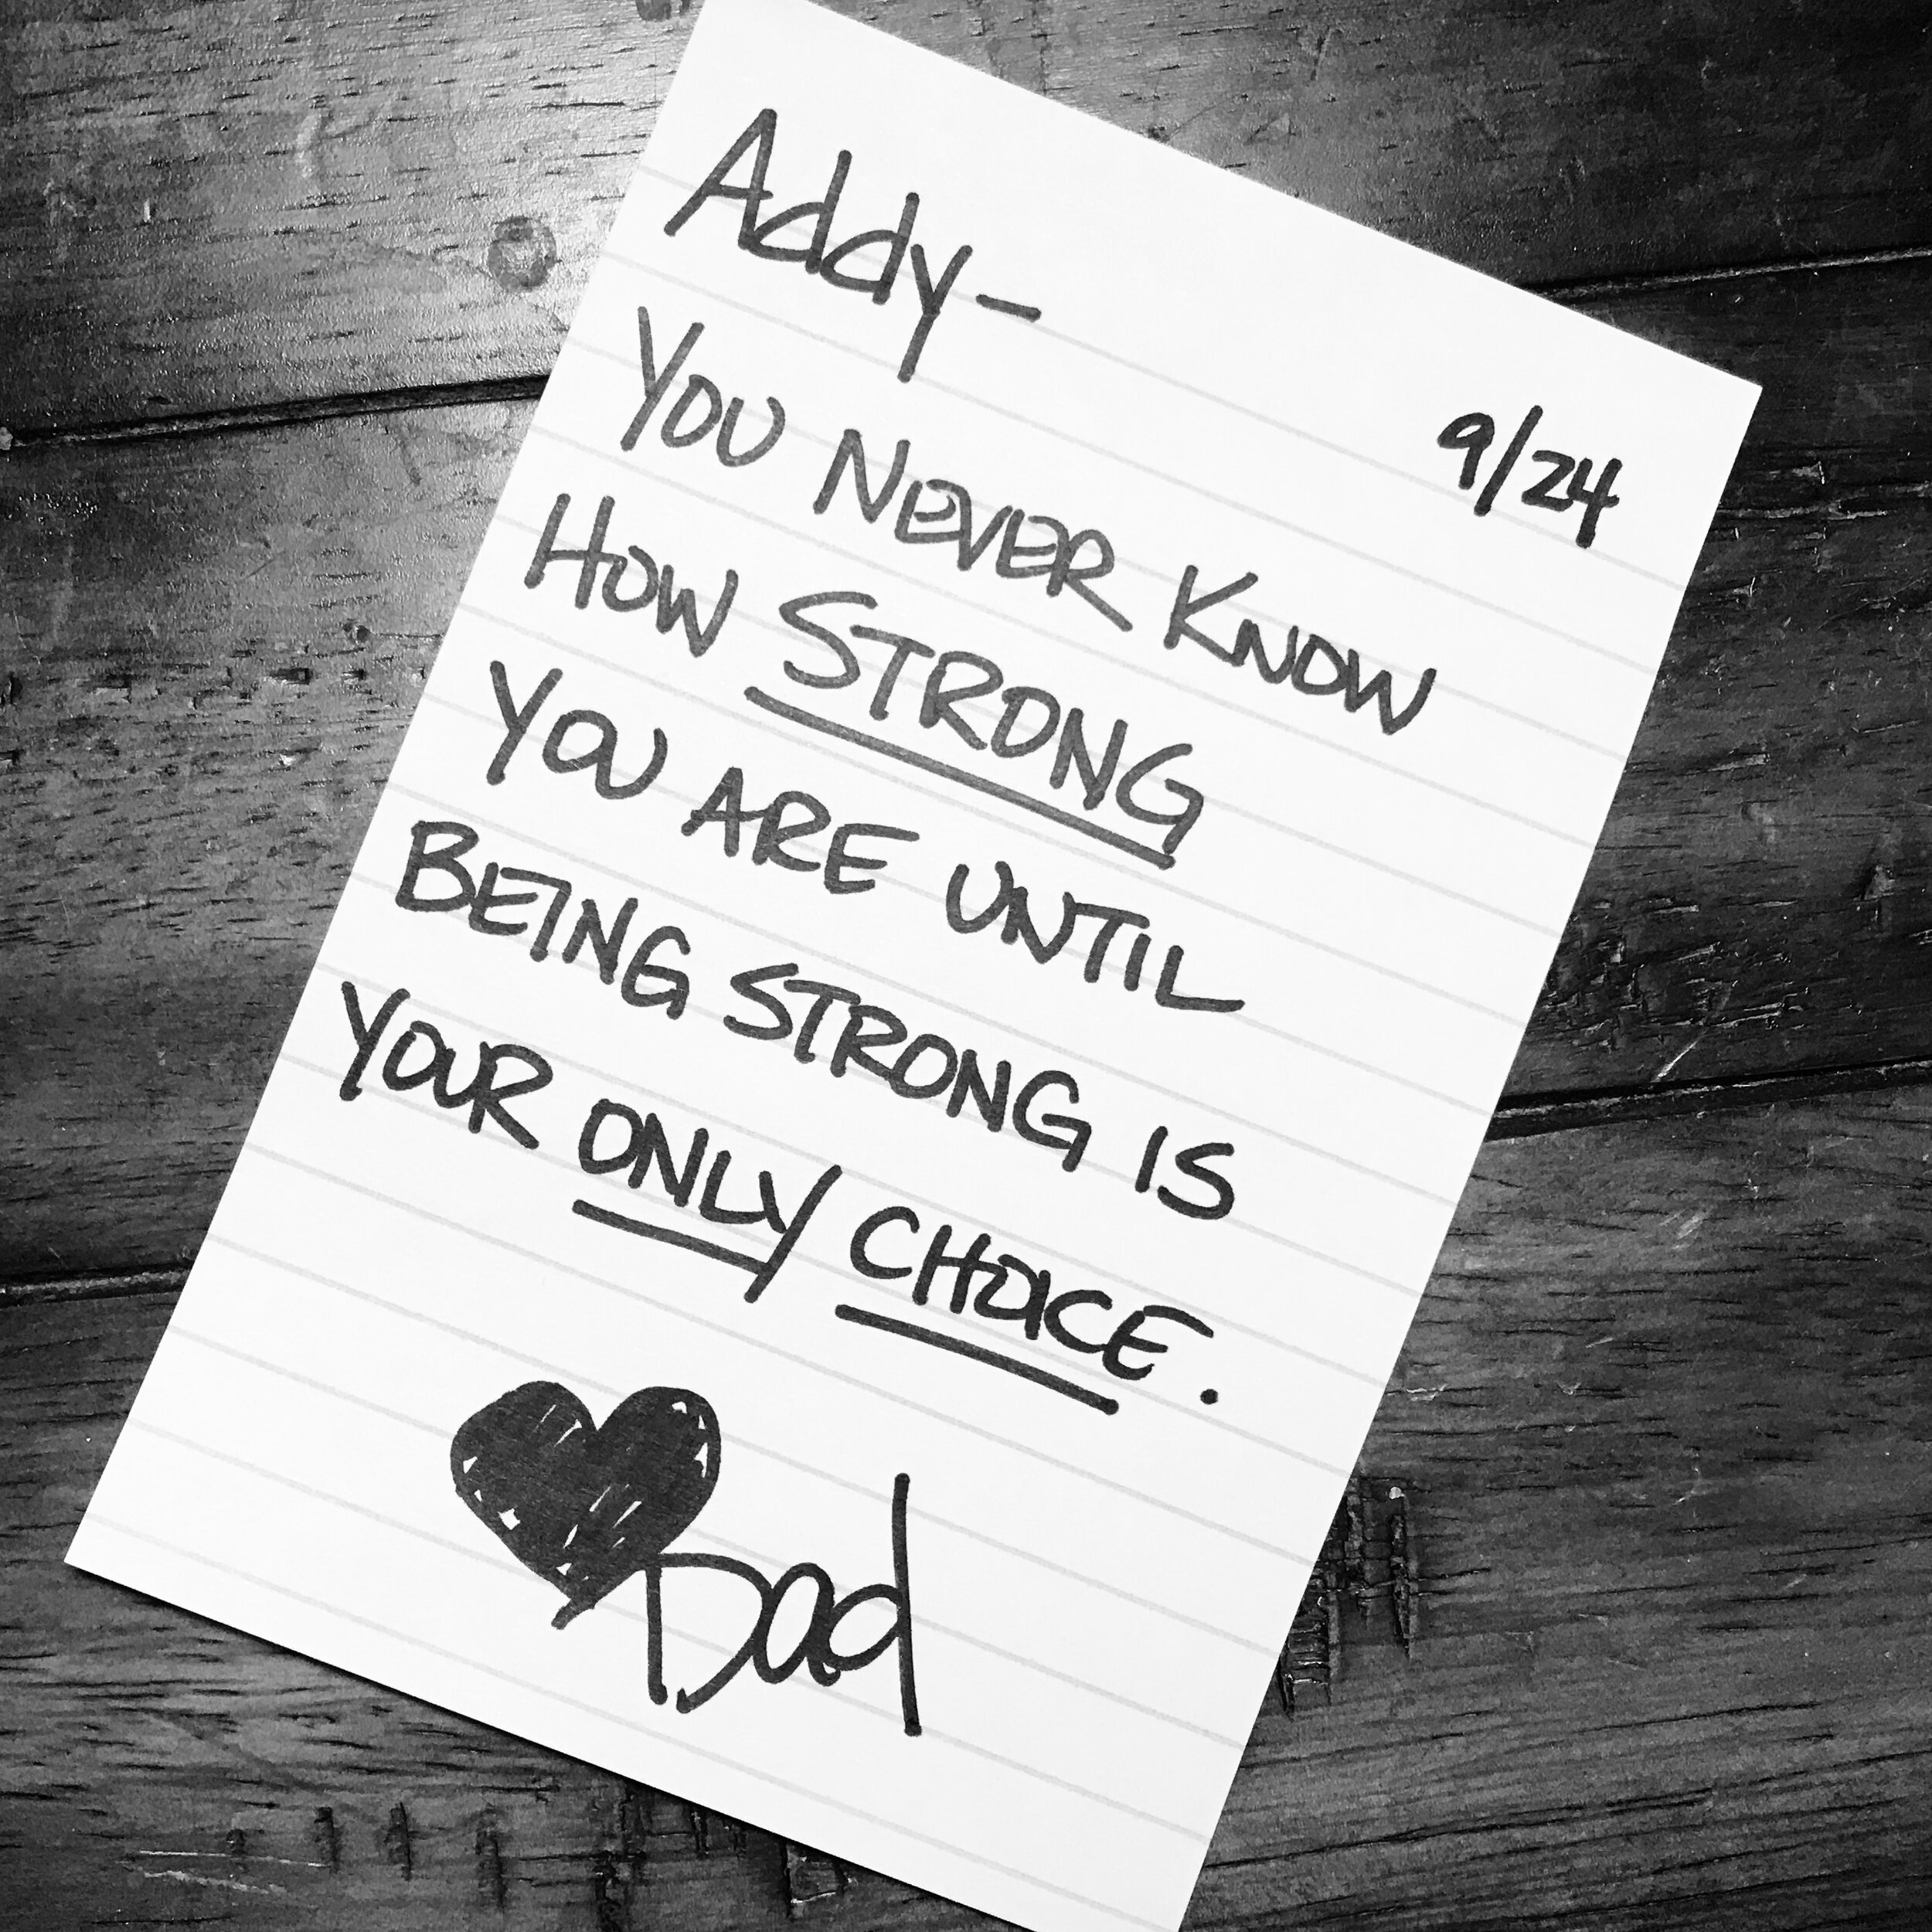 Addy-
9/24
YOU NEVER KNOW
HOW STRONG
YOU ARE UNTIL
BEING STRONG IS
YOUR ONLY CHOICE.
Dad